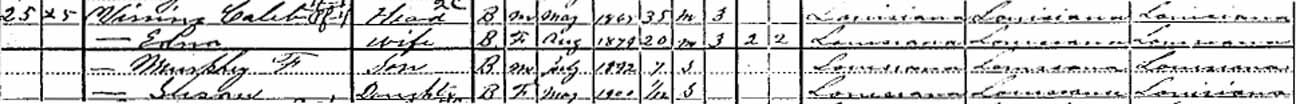 25 25 Vining Caleb Head B M May 1865 35 M 3 Louisiana Louisiana Louisiana
— Edna Wife B F Aug 1879 20 M 3 2 2 Louisiana Louisiana Louisiana
— Murphy F Son B M July 1892 7 S Louisiana Louisiana Louisiana
— Daughter B F May 1900 /12 S Louisiana Louisiana Louisiana